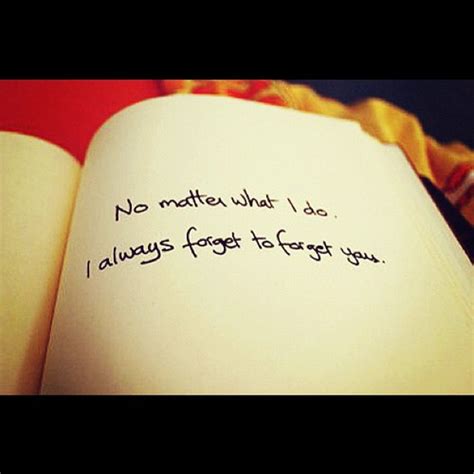 No matter what I do.
I always forget to forget you.